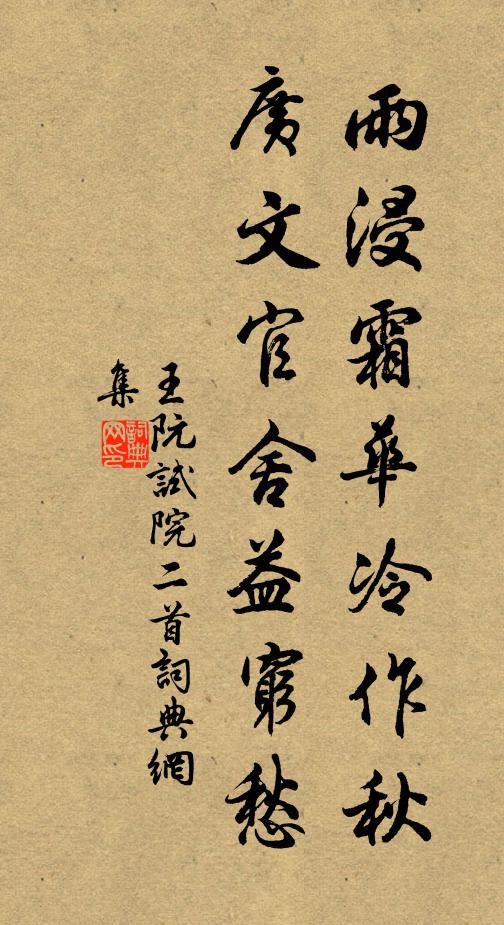 雨浸霜華冷作秋
廣文官舍益窮愁
王阮試院二首詞典網
集
詞典
网印